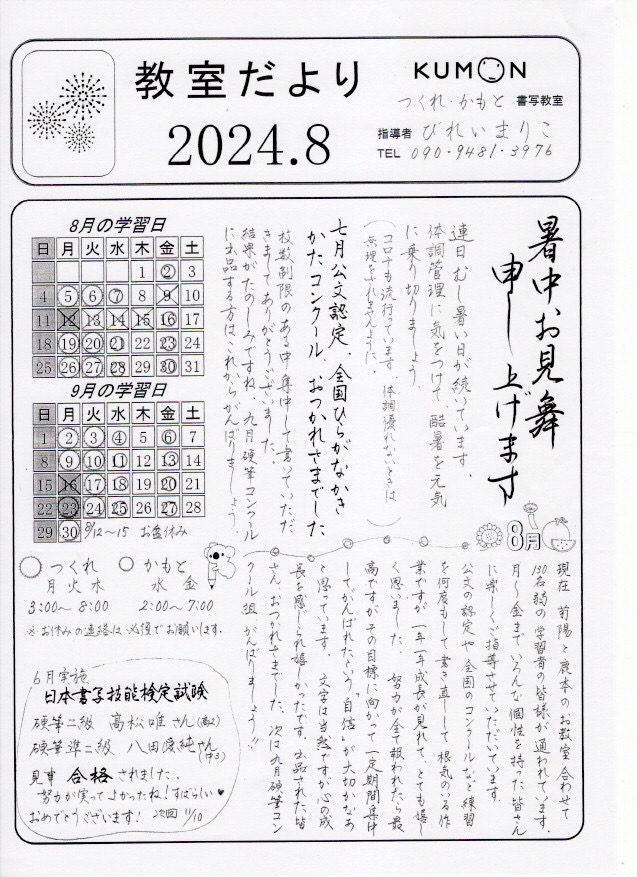 教室だより
2024.8
KUMON
つくれ・かもと 書写教室
指導者 びれいまりこ
TEL 090-9481-3976
暑中お見舞
申し上げます
連日むし暑い日が続いています。
体調管理に気をつけて、酷暑を元気
に乗り切りましょう。
(コロナも流行ています。体調優れないときは
無理をせずれませんように。
七月公文認定、全国ひらがなかき
かたコンクール、おつかれさまでした
枚数制限のある中集中して書いていただ
きましてありがとうございました。
結果がたのしみですね。九月硬筆コンクール
に出品する方はこれからがんばりましょう。
8月の学習日
日 月 火 水 木 金 土
1 2 3
4 5 6 7 8 9 10
11 12 13 14 15 16 17
18 19 20 21 22 23 24
25 26 27 28 29 30 31
9月の学習日
日 月 火 水 木 金 土
1 2 3 4 5 6 7
8 9 10 11 12 13 14
15 16 17 18 19 20 21
22 23 24 25 26 27 28
29 30 8/12〜15 お盆休み
つくれ
月 火 木
3:00〜8:00
かもと
水 金
2:00〜7:00
※お休みの連絡は必須でお願いします。
8月
現在 菊陽と鹿本のお教室 合わせて
130名弱の学習者の皆様が通われています。
月〜金までいろんな個性を持った皆さん
に楽しくご指導させていただいています。
公文の認定や全国のコンクールなど練習
を何度もして書き直して根気のいる作
業ですが、一年一年成長が見れて、とても嬉し
く思いました。努力が全て報われたら最
高ですがその目標に向かって一定期間集中
してがんばれたという「自信」が大切かなぁ
と思っています。文字は当然ですが心の成
長を感じられ嬉しかったです。出品された皆
さんおつかれさまでした。次は九月硬筆コン
クール頑張りましょう!!
6月実施
日本書写技能検定試験
硬筆二級 高松唯さん(高2)
硬筆準二級 八田 純さん(中3)
見事 合格 されました。
努力が実ってよかったね!すばらしい♥
おめでとうございます! 次回 11/10